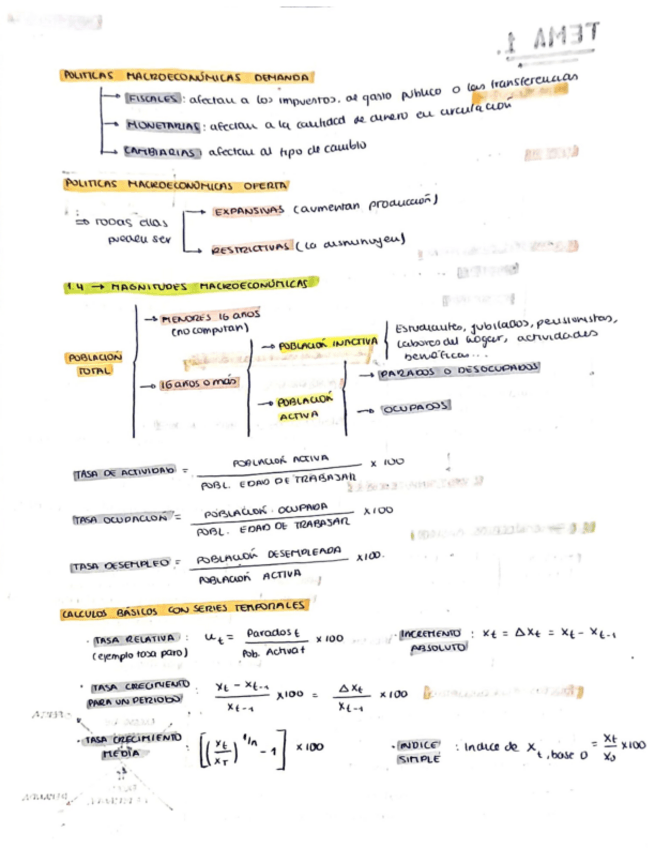 TEMA 1.
POLITICAS MACROECONÓMICAS DEMANDA
→ FISCALES: afectan a los impuestos, al gasto público o las transferencias
→ MONETARIAS: afectan a la cantidad de dinero en circulación
→ CAMBIARIAS) afectan al tipo de cambio
POLITICAS MACROECONÓMICAS OFERTA
⇒ Todas ellas pueden ser
→ EXPANSIVAS (aumentan producción)
→ RESTRICTIVAS (la disminuyen)
1.4 → MAGNITUDES MACROECONÓMICAS
POBLACION TOTAL
→ MENORES 16 años
(no computan)
→ 16 años o más
→ POBLACIÓN INACTIVA
Estudiantes, jubilados, pensionistas,
labores del hogar, actividades
benéficas...
→ POBLACIÓN ACTIVA
→ PARADOS O DESOCUPADOS
→ OCUPADOS
TASA DE ACTIVIDAD = POBLACIÓN ACTIVA / POBL. EDAD DE TRABAJAR x 100
TASA OCUPACIÓN = POBLACIÓN OCUPADA / POBL. EDAD DE TRABAJAR x100
TASA DESEMPLEO = POBLACIÓN DESEMPLEADA / POBLACIÓN ACTIVA x100.
CALCULOS BÁSICOS CON SERIES TEMPORALES
· TASA RELATIVA : u_t = Parados t / Pob. Activa t x 100
(ejemplo tasa paro)
· INCREMENTO ABSOLUTO : X_t = ΔX_t = X_t - X_t-1
· TASA CRECIMIENTO PARA UN PERIODO : X_t - X_t-1 / X_t-1 x100 = ΔX_t / X_t-1 x 100
· TASA CRECIMIENTO MEDIA : [(X_t / X_T)^1/n - 1] x 100
· INDICE SIMPLE : Indice de X_t, base 0 = X_t / X_0 x100